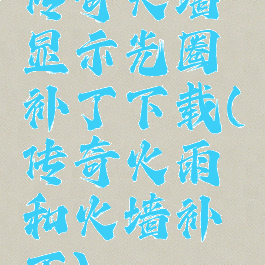 传奇火墙
显示光圈
补丁下载(
传奇火雨
和火墙补
丁)